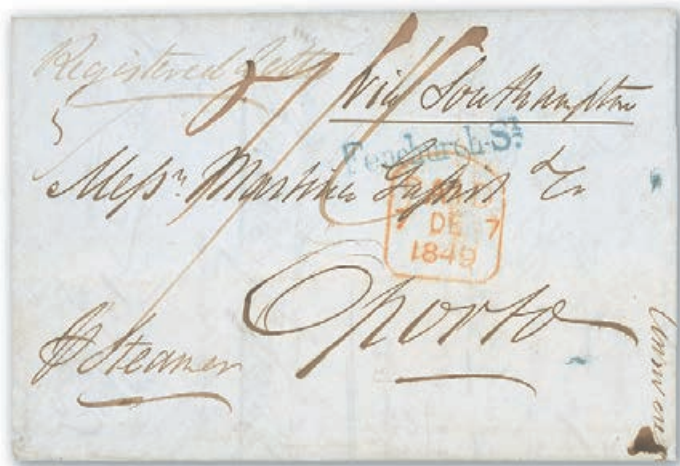 Registered Letter
via Southampton
Fenchurch-St.
Messrs Martinez & Co
7 DE 7
1849
Oporto
p Steamer